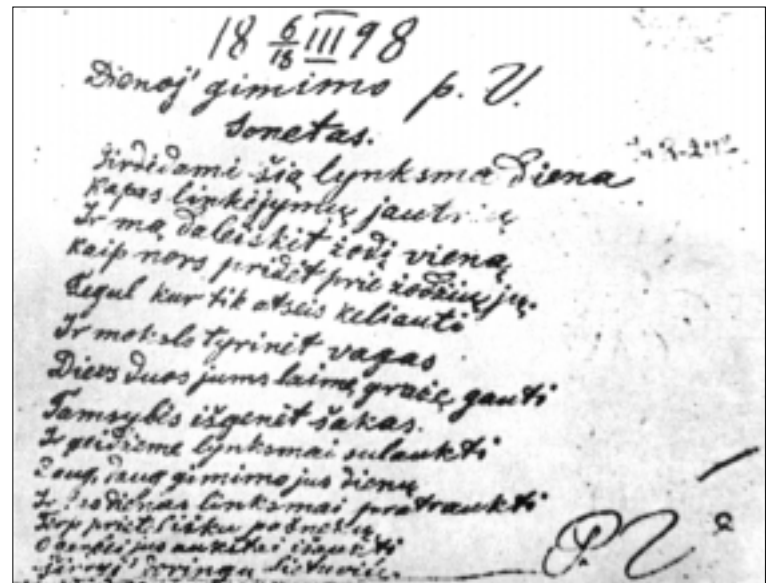 18 6/18 III 98
Dienoj' gimimo p. V.
Sonetas.
Girdėdami šią lynksmą diena
Kapas linkėjymų jautrių
Ir mą daleiskit žodį vieną
Kaip nors pridėt prie žodžių jų.
Tegul kur tik atseis keliauti
Ir mokslo tyrinėt vagas
Dievs duos jums laimę gražię gauti
Tamsybės išgenėt šakas.
Ir geidžeme lynksmai sulaukti
Daug, daug gimimo jus dienų
Ir dienas linksmai pratraukti
Terp
O jus išaukti
širdyj' Lietuvių.
P. V.